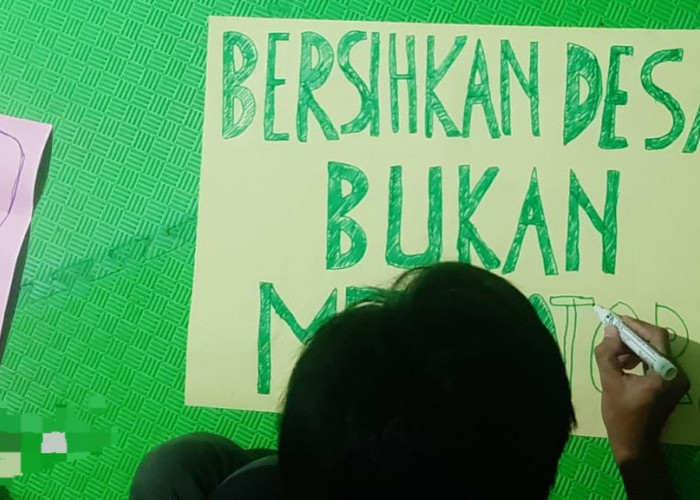 BERSIHKAN DESA
BUKAN